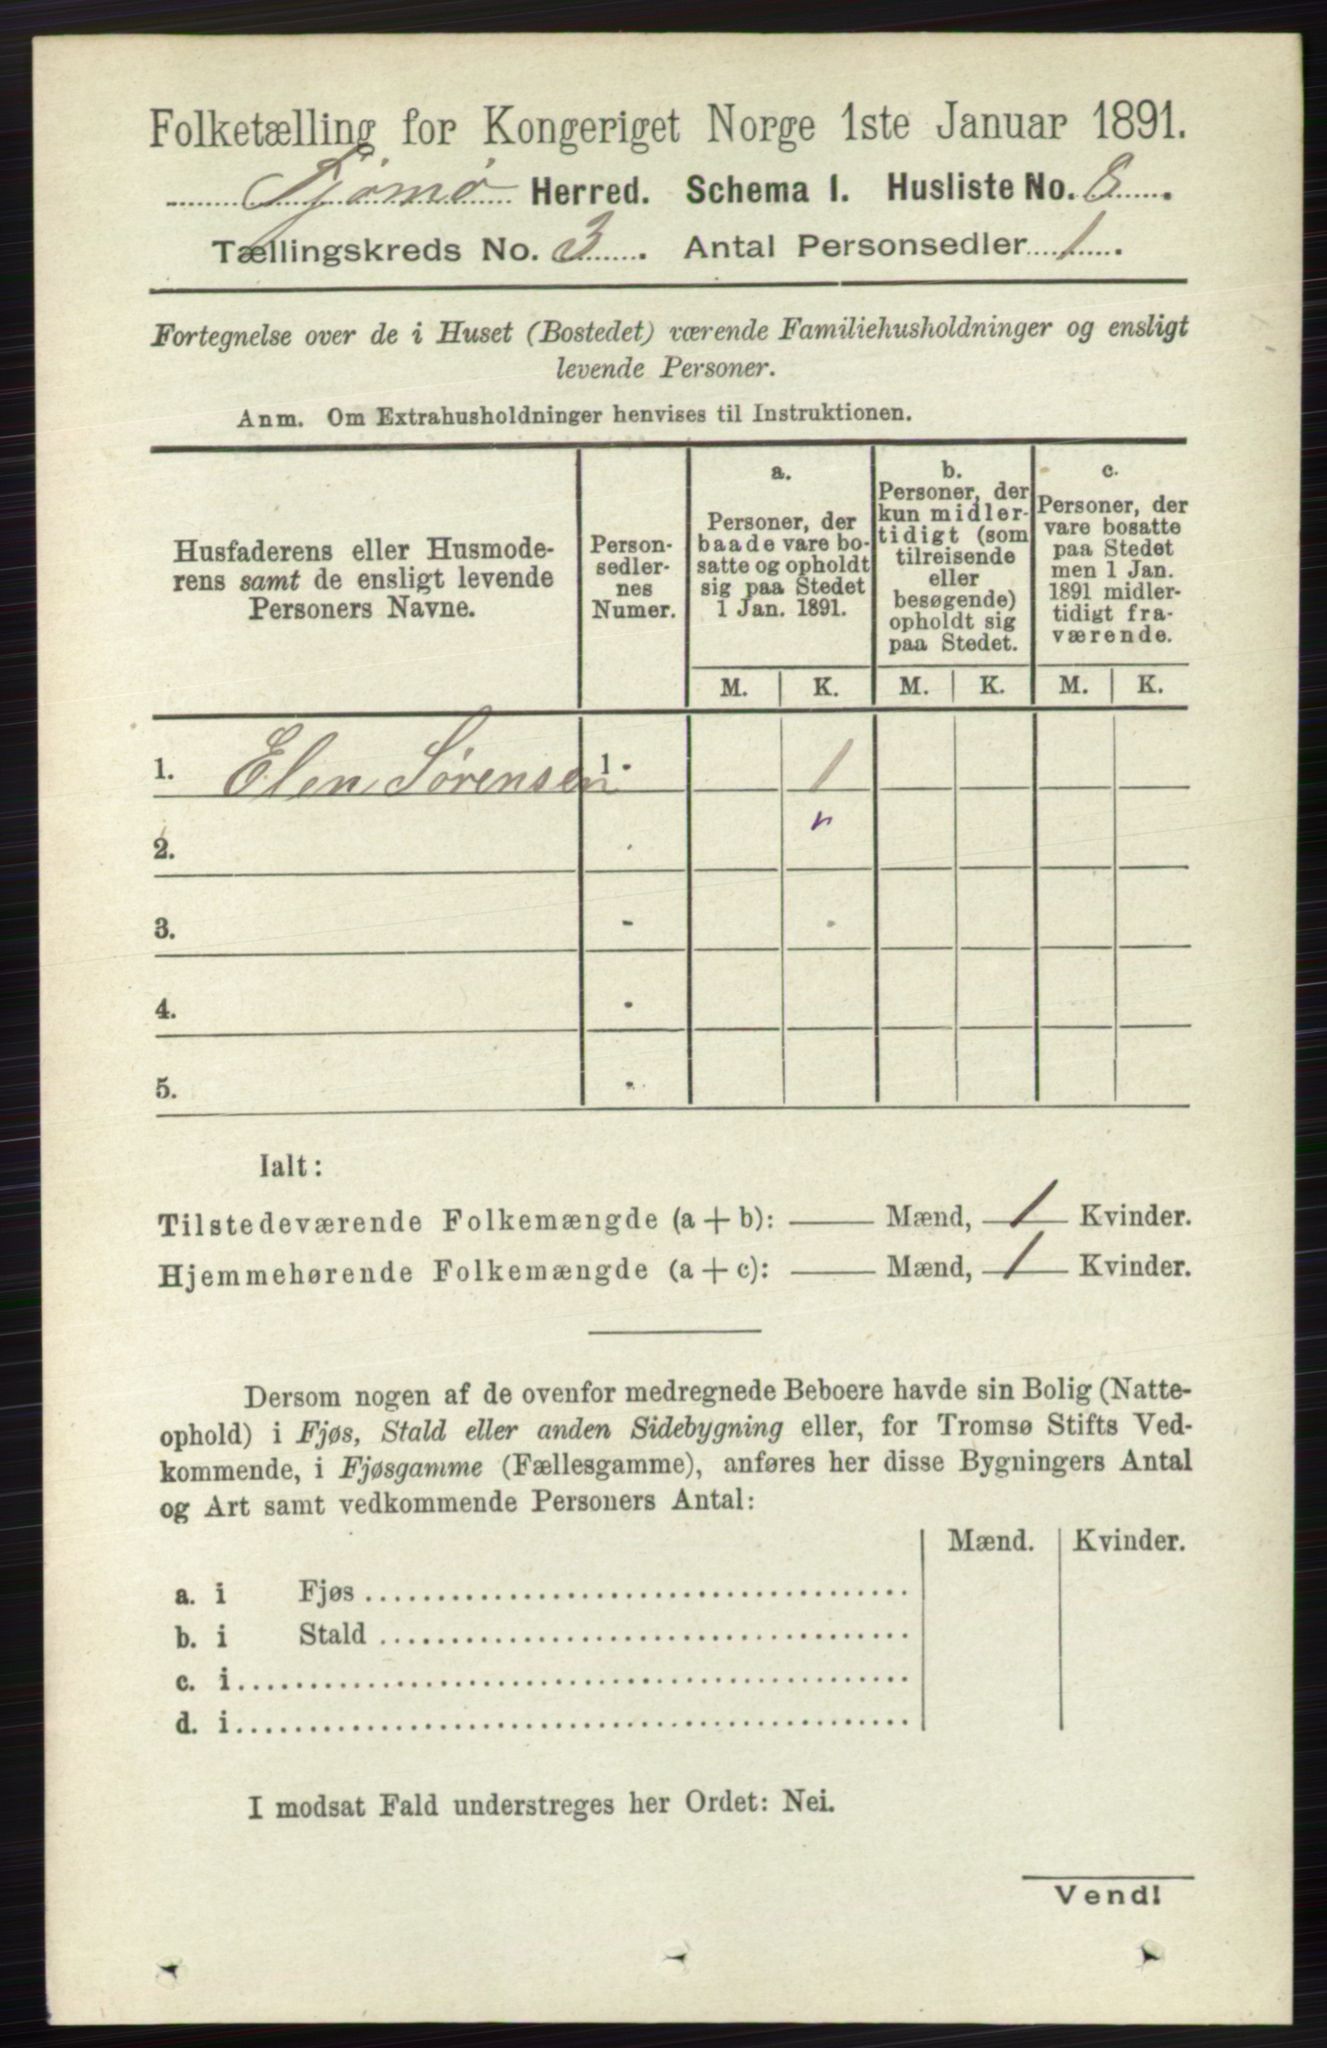 Folketælling for Kongeriget Norge 1ste Januar 1891.
Tjømø Herred. Schema I. Husliste No. 8.
Tællingskreds No. 3. Antal Personsedler 1.
Fortegnelse over de i Huset (Bostedet) værende Familiehusholdninger og ensligt
levende Personer.
Anm. Om Extrahusholdninger henvises til Instruktionen.
Husfaderens eller Husmode-
rens samt de ensligt levende
Personers Navne.
Person-
sedler-
nes
Numer.
a.
Personer, der
baade vare bo-
satte og opholdt
sig paa Stedet
1 Jan. 1891.
b.
Personer, der
kun midler-
tidigt (som
tilreisende
eller
besøgende)
opholdt sig
paa Stedet.
c.
Personer, der
vare bosatte
paa Stedet
men 1 Jan.
1891 midler-
tidigt fra-
værende.
M. K. M. K. M. K.
1. Elen Sørensen 1 - 1
2. -
3. -
4. -
5. -
Ialt:
Tilstedeværende Folkemængde (a + b): Mænd, 1 Kvinder.
Hjemmehørende Folkemængde (a + c): Mænd, 1 Kvinder.
Dersom nogen af de ovenfor medregnede Beboere havde sin Bolig (Natte-
ophold) i Fjøs, Stald eller anden Sidebygning eller, for Tromsø Stifts Ved-
kommende, i Fjøsgamme (Fællesgamme), anføres her disse Bygningers Antal
og Art samt vedkommende Personers Antal:
Mænd. Kvinder.
a. i Fjøs
b. i Stald
c. i
d. i
I modsat Fald understreges her Ordet: Nei.
Vend!